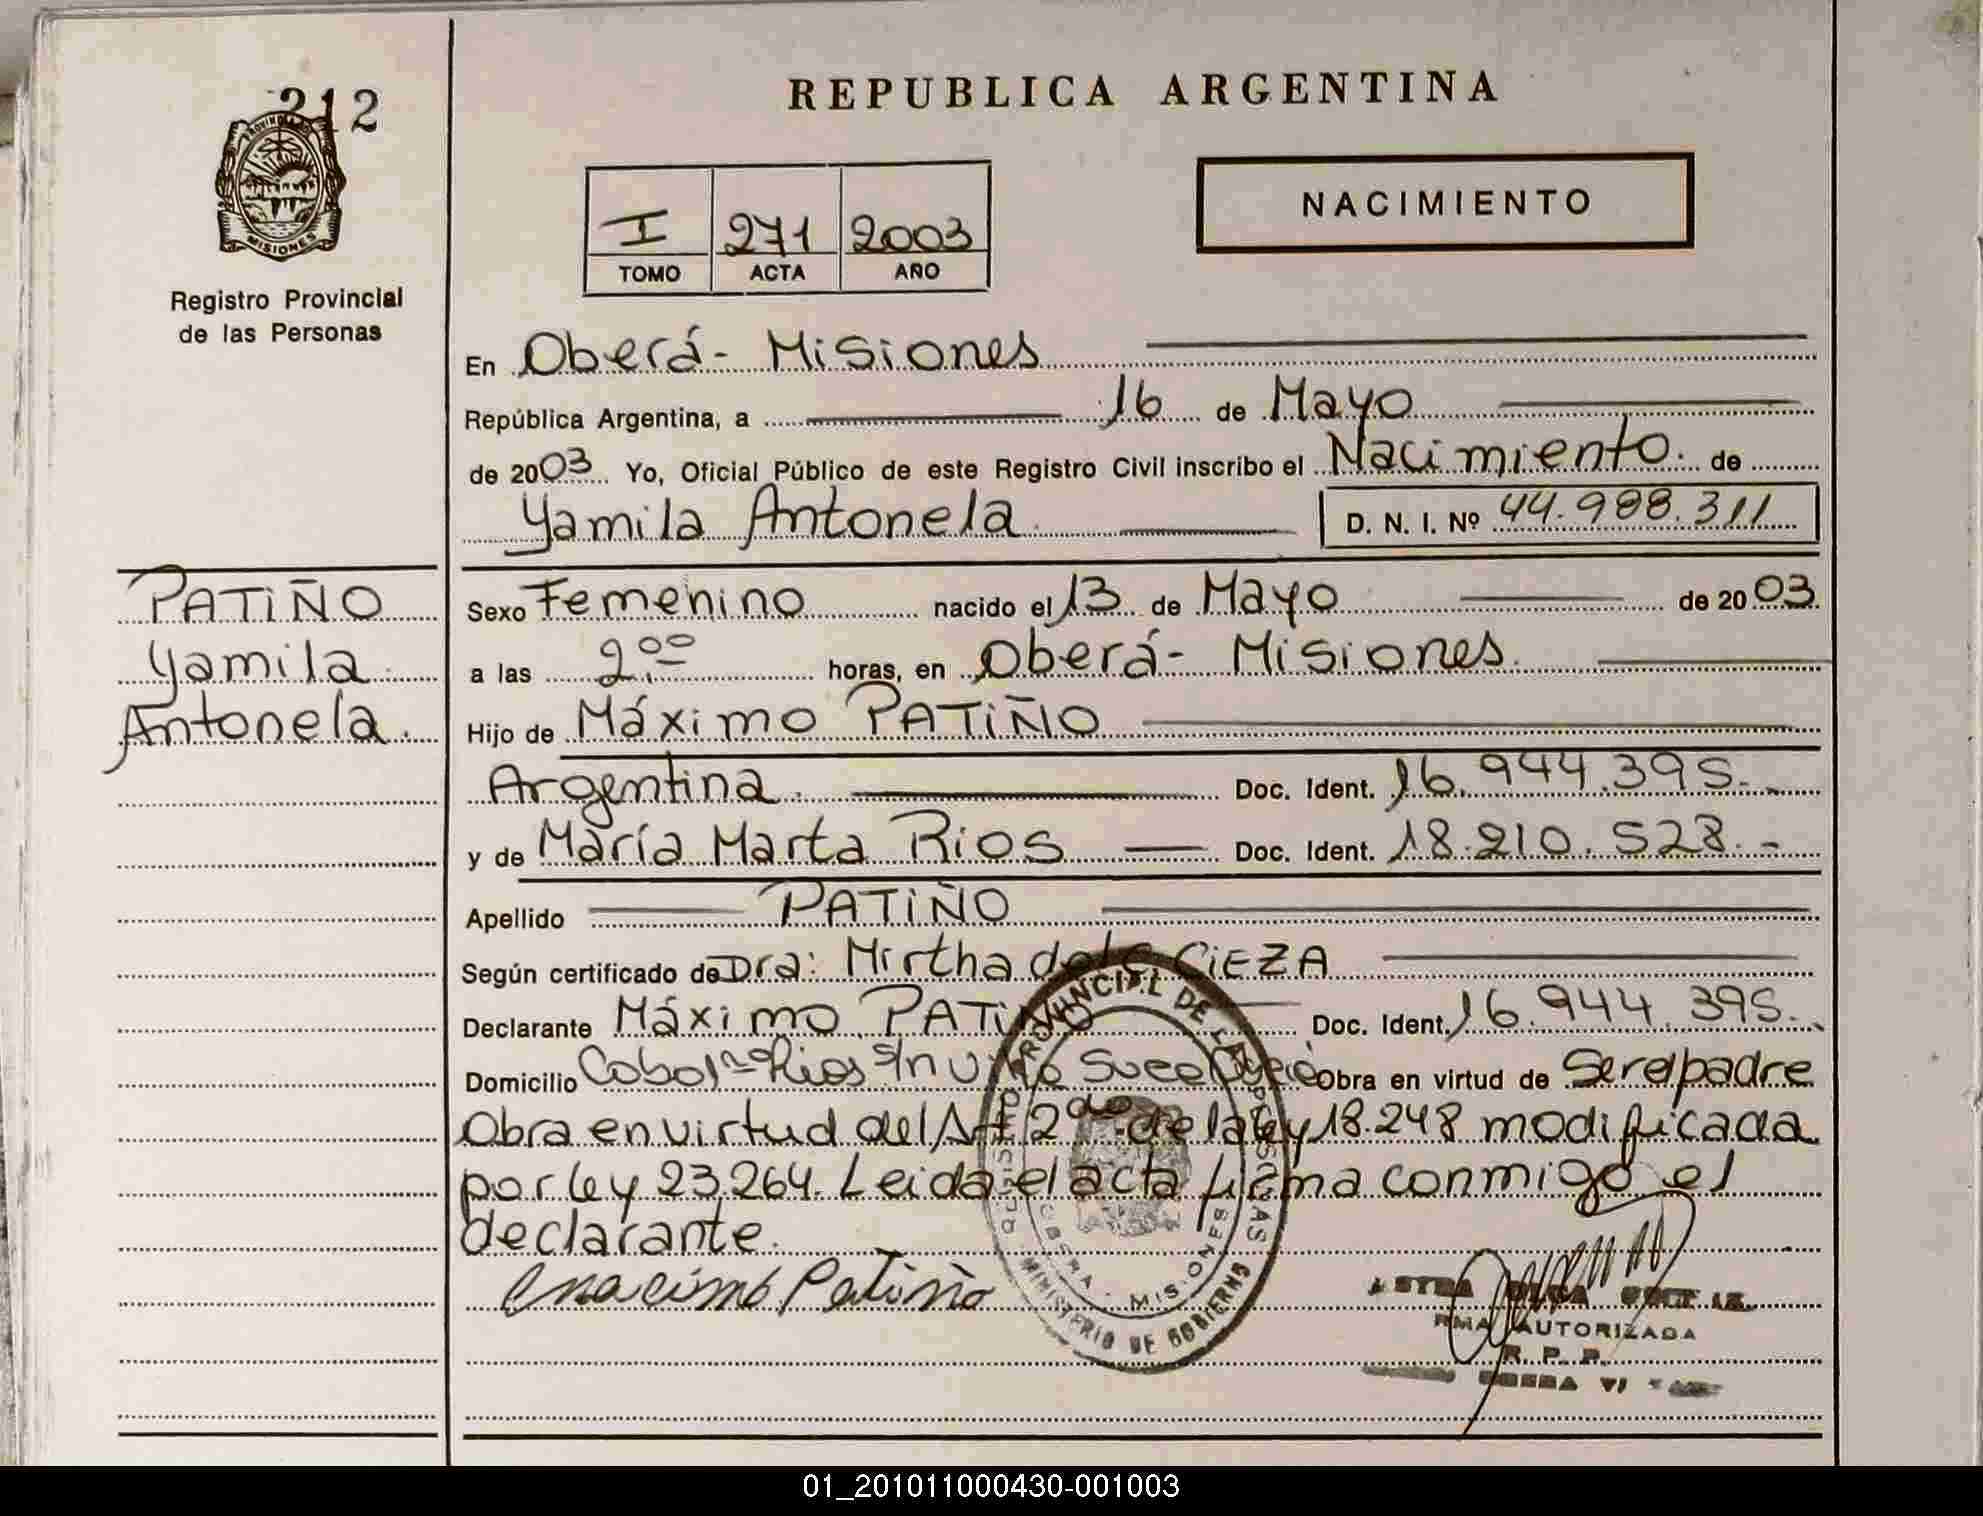 212
PROVINCIA DE
MISIONES
Registro Provincial
de las Personas
REPUBLICA ARGENTINA
NACIMIENTO
I 271 2003
TOMO ACTA AÑO
En Oberá- Misiones
República Argentina, a 16 de Mayo
de 2003 Yo, Oficial Público de este Registro Civil inscribo el Nacimiento. de
Yamila Antonela. D. N. I. Nº 44.988.311
PATIÑO
Yamila
Antonela.
Sexo Femenino nacido el 13 de Mayo de 2003
a las 2,00 horas, en Oberá- Misiones.
Hijo de Máximo PATIÑO
Argentina. Doc. Ident. 16.944.395.-
y de María Marta Rios Doc. Ident. 18.210.528.-
Apellido PATIÑO
Según certificado de Dra: Mirtha de CIEZA
Declarante Máximo PATIÑO Doc. Ident. 16.944.395.-
Domicilio Rios s/n Obra en virtud de Ser el padre
Obra en virtud del Art 2do de la ley 18.248 modificada
por ley 23.264. Leida el acta firma conmigo el
declarante.
Maximo Patiño
PROVINCIAL DE LAS PERSONAS
OBERA - MISIONES
MINISTERIO DE GOBIERNO
AUTORIZADA
R. P. P.
OBERA
01_201011000430-001003